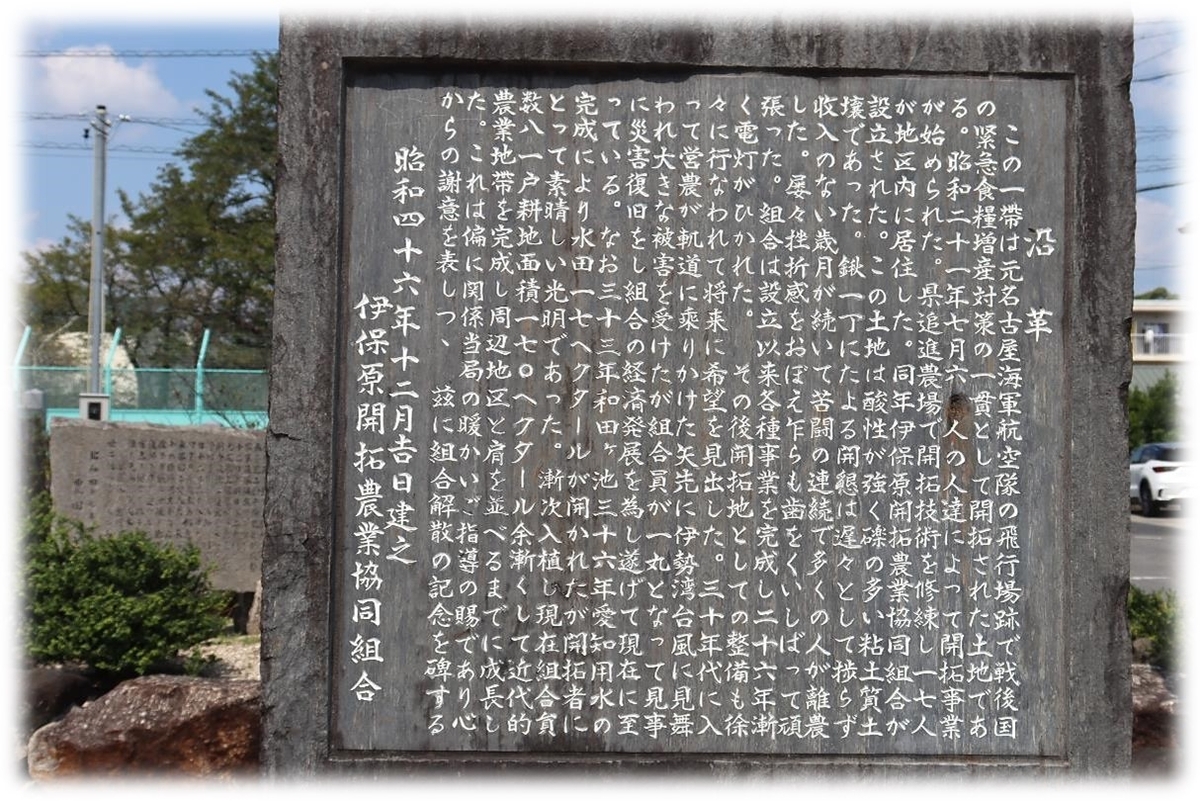 沿革
この一帯は元名古屋海軍航空隊の飛行場跡で戦後国
の緊急食糧増産対策の一貫として開拓された土地であ
る。昭和二十一年七月六 人の人達によって開拓事業
が始められた。県追進農場で開拓技術を修練し一七人
が地区内に居住した。同年伊保原開拓農業協同組合が
設立された。この土地は酸性が強く礫の多い粘土質土
壌であった。鍬一丁にたよる開懇は遅々として捗らず
収入のない歳月が続いて苦闘の連続で多くの人が離農
した。屡々挫折感をおぼえ乍らも歯をくいしばって頑
張った。組合は設立以来各種事業を完成し二十六年漸
く電灯がひかれた。その後開拓地としての整備も徐
々に行なわれて将来に希望を見出した。三十年代に入
って営農が軌道に乗りかけた矢先に伊勢湾台風に見舞
われ大きな被害を受けたが組合員が一丸となって見事
に災害復旧をし組合の経済発展を為し遂げて現在に至
っている。なお三十三年和田ヶ池三十六年愛知用水の
完成により水田一七ヘクタールが開かれたが開拓者に
とって素晴しい光明であった。漸次入植し現在組合員
数八一戸耕地面積一七〇ヘクタール余漸くして近代的
農業地帯を完成し周辺地区と肩を並べるまでに成長し
た。これは偏に関係当局の暖かいご指導の賜であり心
からの謝意を表しつゝ、茲に組合解散の記念を碑する
昭和四十六年十二月吉日建之
伊保原開拓農業協同組合